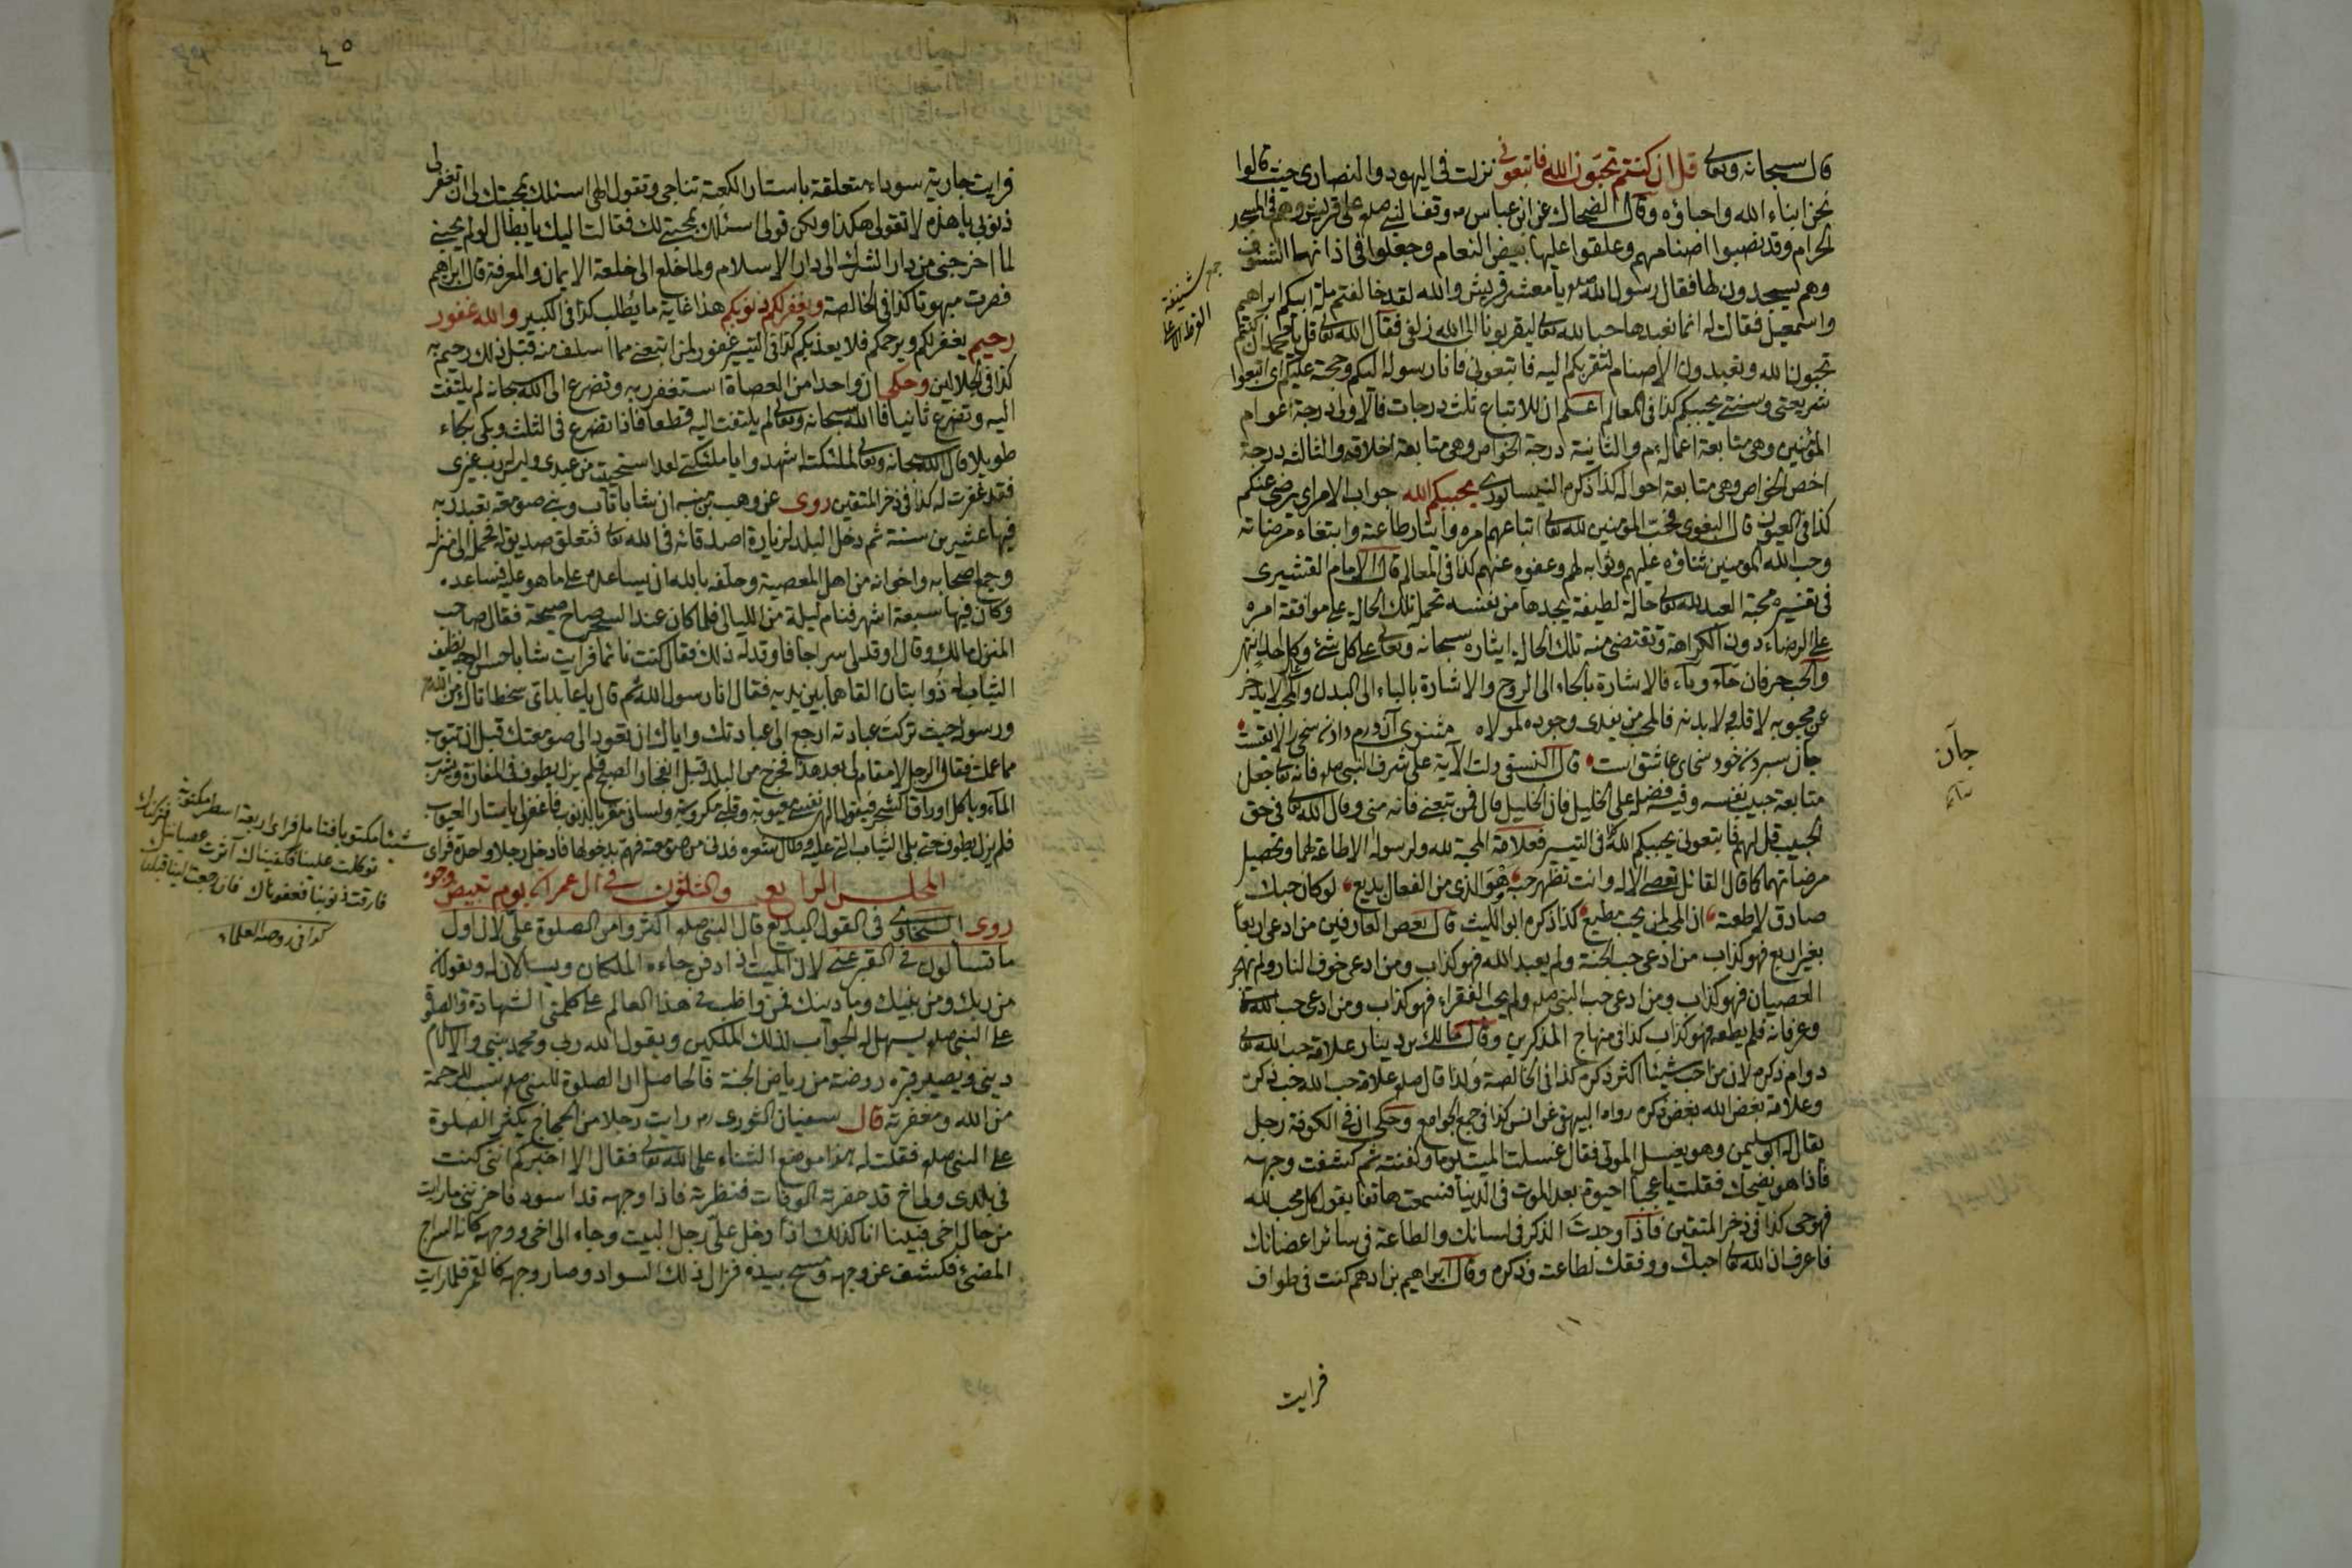 قال سبحانه وتعالى قل ان كنتم تحبون الله فاتبعونى نزلت فى اليهود والنصارى حيث قالوا
نحن ابناء الله واحباؤه وقال الضحاك عن ابن عباس رض وقف النبى صلعم على قريش وهم فى المسجد
الحرام وقد نصبوا اصنامهم وعلقوا عليها بيض النعام وجعلوا فى اذانها الشنوف
وهم يسجدون لها فقال رسول الله صلعم يا معشر قريش والله لقد خالفتم ملة ابيكم ابراهيم
واسمعيل فقالت له انما نعبدها حبا لله تعالى ليقربونا الى الله زلفى فقال الله تعالى قل يا محمد ان كنتم
تحبون الله وتعبدون الاصنام لتقربكم اليه فاتبعونى فانا رسوله اليكم وحجة عليكم اى اتبعوا
شريعتى وسنتى يحببكم كذا فى المعالم اعلم ان للاتباع ثلث درجات فالاولى درجة عوام
المؤمنين وهى متابعة اعماله والثانية درجة الخواص وهى متابعة اخلاقه والثالثة درجة
اخص الخواص وهى متابعة احواله كذا ذكره النيسابورى يحببكم الله جواب الامر اى يرضى عنكم
كذا فى العيون قال البغوى فحب المؤمنين لله تعالى اتباعهم امره وايثار طاعته وابتغاء مرضاته
وحب الله المؤمنين ثناؤه عليهم وثوابه لهم وعفوه عنهم كذا فى المعالم قال الامام القشيرى
فى تفسيره محبة العبد لله تعالى حالة لطيفة يجدها من نفسه تحمله تلك الحالة على موافقة امره
على الرضاء دون الكراهة وتقتضى منه تلك الحالة ايثاره سبحانه وتعالى على كل شئ وكل احد انتهى
والحب حرفان حاء وباء فالاشارة بالحاء الى الروح والاشارة بالباء الى البدن والمحب لا يدخر
عن محبوبه لا قلبه ولا بدنه فالمحب من يفدى وجوده لمولاه مثنوى آن درم دادن سخى را لايقست
جان سپردن خود سخاى عاشق است قال النسفى دلت الآية على شرف النبى صلعم فانه تعالى جعل
متابعة حبيبه نفسه وفيه فضل على الخليل فان الخليل قال فمن تبعنى فانه منى وقال الله تعالى فى حق
الحبيب قل لهم فاتبعونى يحببكم الله كذا فى التيسير فعلامة المحبة لله ولرسوله الاطاعة لهما وتحصيل
مرضاتهما كما قال القائل تعصى الاله وانت تظهر حبه هو الذى من الفعال بديع لو كان حبك
صادق لاطعته ان المحب لمن يحب مطيع كذا ذكره ابو الليث قال بعض العارفين من ادعى اربعا
بغير اربع فهو كذاب من ادعى حب الجنة ولم يعبد الله فهو كذاب ومن ادعى خوف النار ولم يهجر
العصيان فهو كذاب ومن ادعى حب النبى صلعم ولم يحب الفقراء فهو كذاب ومن ادعى حب الله
وعرفانه فلم يطعه فهو كذاب كذا فى منهاج المذكرين وقال مالك بن دينار علامة حب الله تعالى
دوام ذكره لان من احب شيئا اكثر ذكره كذا فى الخالصة ولذا قال صلعم علامة حب الله حب ذكره
وعلامة بغض الله بغض ذكره رواه البيهقى عن انس كذا فى جمع الجوامع وحكى ان فى الكوفة رجل
يقال له ابو سليمن وهو يغسل الموتى فقال غسلت الميت يوما وكفنته ثم كشفت وجهه
فاذا هو يضحك فقلت يا عجبا احيوة بعد الموت فى الدنيا فسمعت هاتفا يقول كل محب لله
فهو حى كذا فى ذخر المتقين فاذا وجدت الذكر فى لسانك والطاعة فى سائر اعضائك
فاعرف ان الله تعالى احبك ووفقك لطاعته وذكره وقال ابراهيم بن ادهم كنت فى طواف
فرايت
جمع شنيفة
جان
٤٠
فرايت جارية سوداء متعلقة باستار الكعبة تناجى وتقول الهى اسئلك بمحبتك لى ان تغفر لى
ذنوبى يا هذه لا تقولى هكذا ولكن قولى اسئلك بمحبتى لك فقالت اليك يا بطال لو لم يحبنى
لما اخرجنى من دار الشرك الى دار الاسلام ولما خلع الى خلعة الايمان والمعرفة قال ابراهيم
فصرت مبهوتا كذا فى الخالصة ويغفر لكم ذنوبكم هذا غاية ما يطلب كذا فى الكبير والله غفور
رحيم يغفر لكم ويرحمكم فلا يعذبكم كذا فى التيسير غفور لمن اتبعنى مما سلف منه قبل ذلك رحيم به
كذا فى الجلالين وحكى ان واحدا من العصاة استغفر ربه وتضرع الى الله سبحانه لم يلتفت
اليه وتضرع ثانيا فالله سبحانه وتعالى لم يلتفت اليه قطعا فاذا تضرع فى الثلث وبكى بكاء
طويلا قال الله سبحانه وتعالى لملئكته اشهدوا يا ملئكتى لقد استحييت من عبدى وليس له رب غيرى
فقد غفرت له كذا فى ذخر المتقين روى عن وهب بن منبه ان شابا تاب وبنى صومعة تعبد ربه
فيها عشرين سنة ثم دخل البلد لزيارة اصدقائه فى الله تعالى فتعلق صديق له فحمله الى منزله
وجمع اصحابه واخوانه من اهل المعصية وحلفه بالله ان يساعدهم على ما هو عليه فساعده
وكان فيها سبعة اشهر فنام ليلة من الليالى فلما كان عند السحر صاح صيحة فقال صاحب
المنزل مالك وقال اوقد لى سراجا فاوقد له ذلك فقال كنت نائما فرايت شابا حسن الوجه نظيف
الثياب له ذوابتان القاهما بين يديه فقال انا رسول الله ثم قال يا عابد اتى سخط اتاك من الله
ورسوله حيث تركت عبادته ارجع الى عبادتك واياك ان تعود الى صومعتك قبل ان تتوب
مما عملت فقال الرجل لا مقام لى بعد هذا فخرج من البلد قبل انفجار الصبح فلم يزل يطوف فى المفازة ويشرب
الماء وياكل اوراق الشجر فيقول الهى نفسى معيوبة وقلبى مكروبة ولسانى مقر بالذنوب فاغفر لى يا ستار العيوب
فلم يزل يطوف حتى بلى الثياب التى عليه وطال شعره فدنى من صومعته فهم بدخولها فادخل رجلا واحدة فراى
المجلس الرابع والثلثون فى آل عمران يوم تبيض وجوه
روى السخاوى فى القول البديع قال النبى صلعم اكثروا من الصلوة على لان اول
ما تسألون فى القبر عنى لان الميت اذا دفن جاءه الملكان ويسألان له ويقولان
من ربك ومن نبيك وما دينك فمن واظب فى هذا العالم على كلمتى الشهادة والصلوة
على النبى صلعم يسهل له الجواب لذلك الملكين ويقول الله ربى ومحمد نبيى والاسلام
دينى ويصير قبره روضة من رياض الجنة فالحاصل ان الصلوة للنبى صلعم سبب للرحمة
من الله ومغفرته قال سفيان الثورى رح رايت رجلا من الحجاج يكثر الصلوة
على النبى صلعم فقلت له هذا موضع الثناء على الله تعالى فقال الا اخبركم اننى كنت
فى بلدى ولى اخ قد حضرته الوفات فنظرته فاذا وجهه قد اسود فاحزننى ما رايت
من حال اخى فبينا انا كذلك اذا دخل على رجل البيت وجاء الى اخى ووجهه كانه السراج
المضئ فكشف عن وجهه ومسح بيده فزال ذلك السواد وصار وجهه كالقمر فلما رايت
شيئا مكتوبا فتامله فراى اربعة اسطر مكتوبة
توكلت علينا فكفيناك آثرت عصيانك
فارقت ذنوبنا فعفوناك فان رجعت الينا قبلناك
كذا فى روضة العلماء